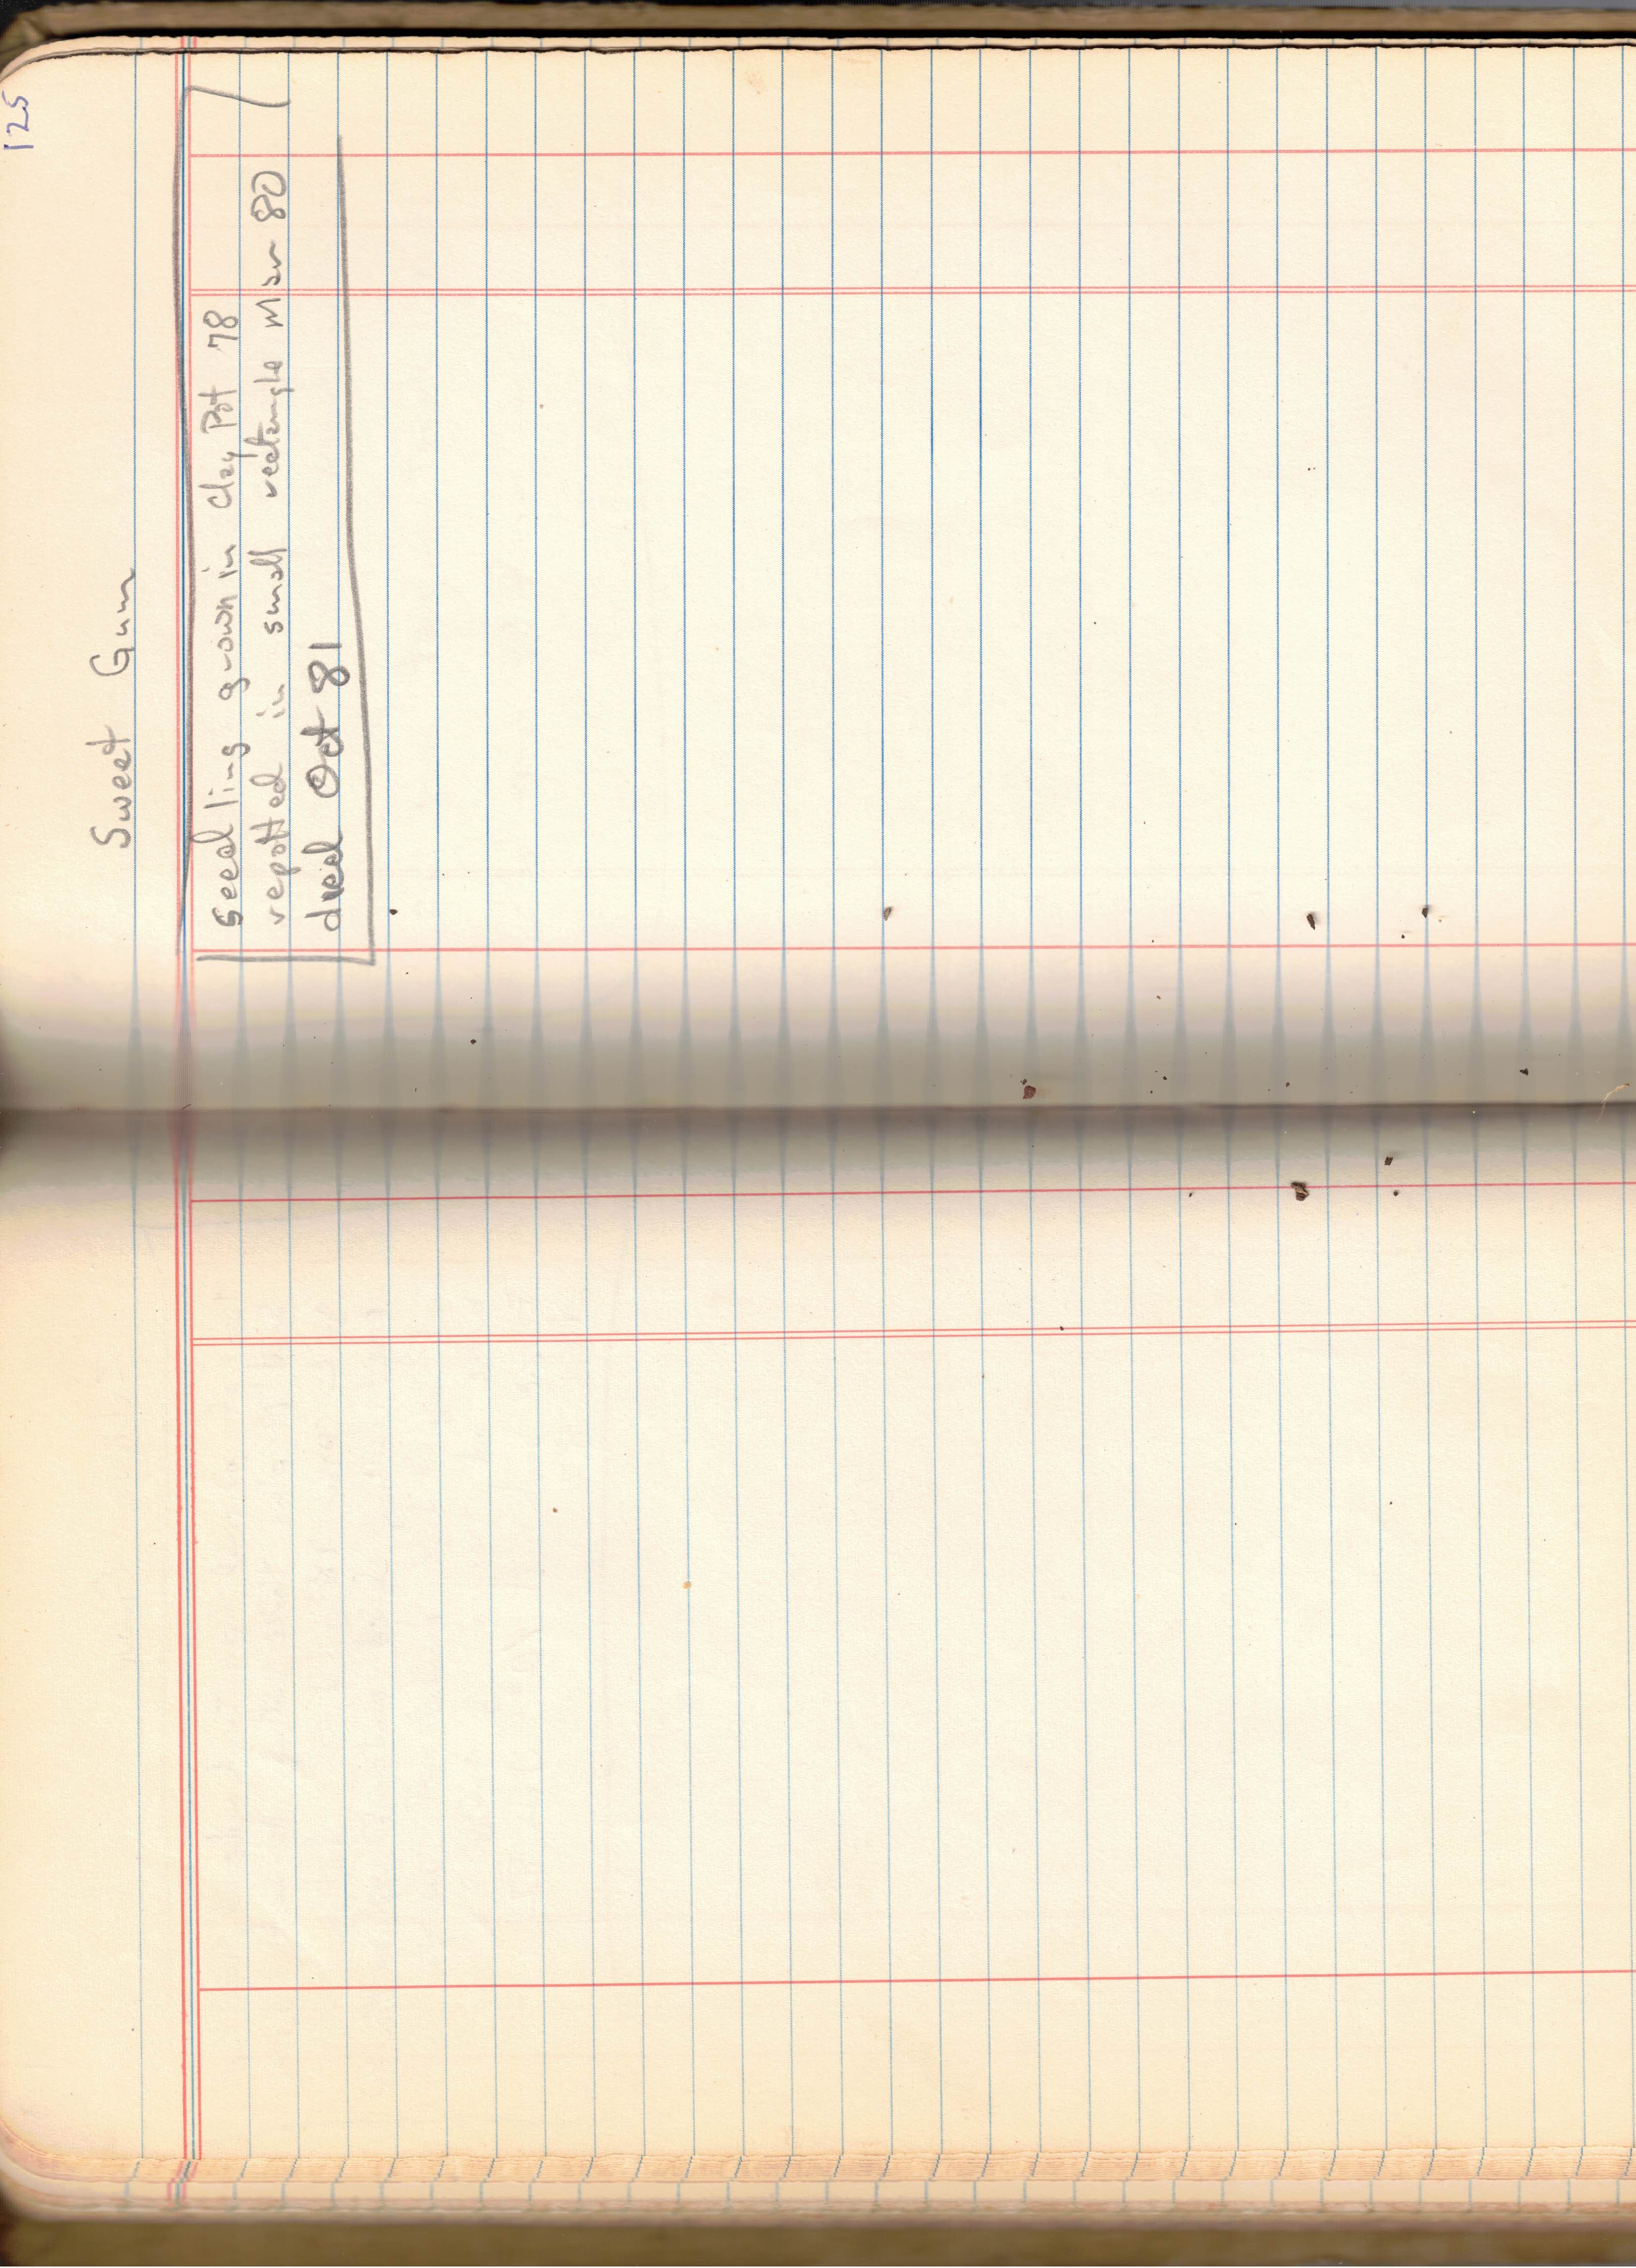 125
Sweet Gum
seedling grown in Clay Pot 78
repotted in small rectangle Mar 80
died Oct 81